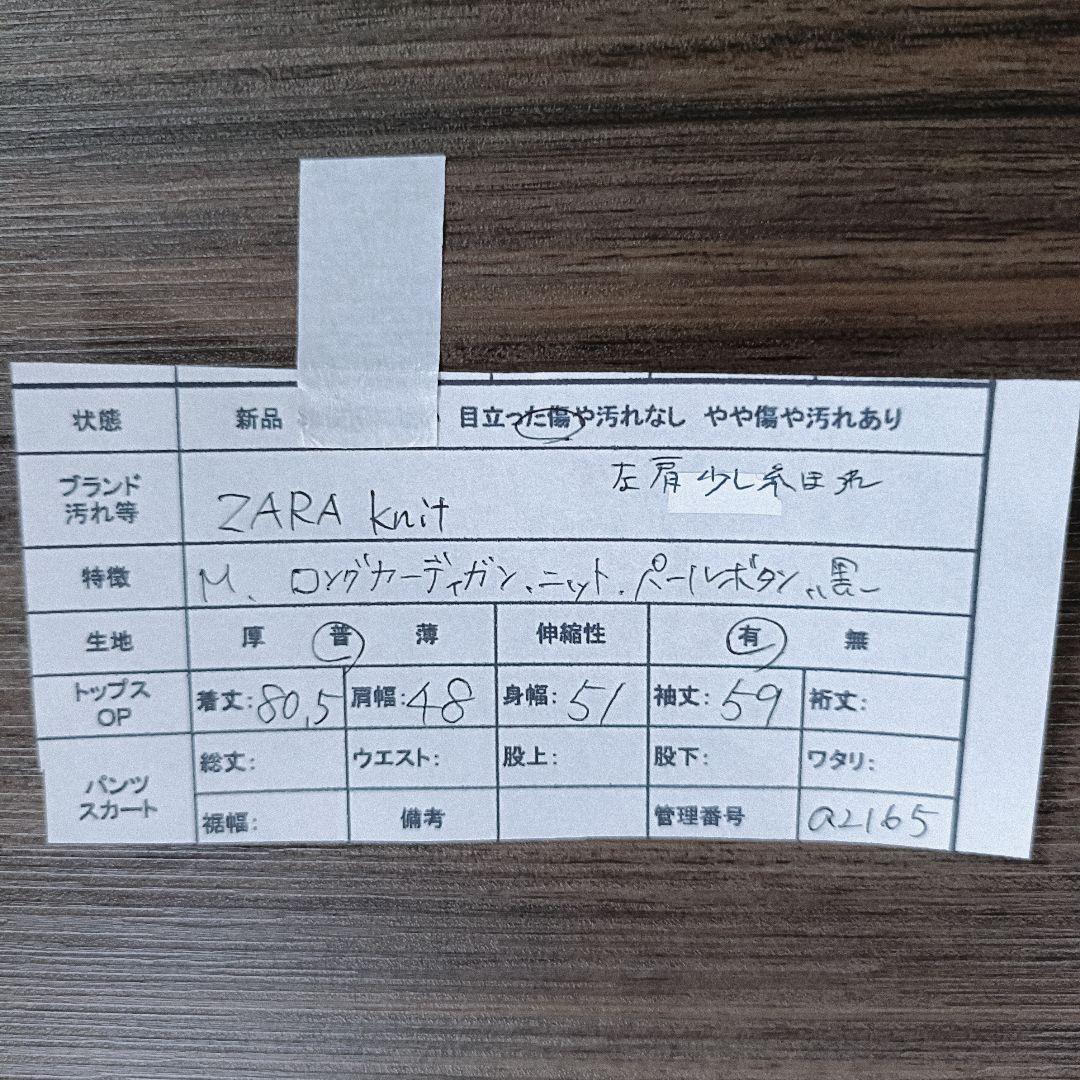 状態 新品 目立った傷や汚れなし やや傷や汚れあり
ブランド
汚れ等
左肩少し糸ほつれ
ZARA knit
特徴 M、ロングカーディガン、ニット、パールボタン、黒
生地 厚 普 薄 伸縮性 有 無
トップス
OP
着丈:80,5 肩幅:48 身幅:51 袖丈:59 裄丈:
パンツ
スカート
総丈: ウエスト: 股上: 股下: ワタリ:
裾幅: 備考 管理番号 a2165